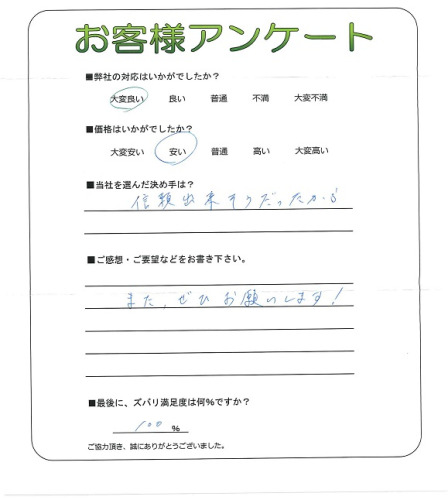 お客様アンケート
■弊社の対応はいかがでしたか？
大変良い 良い 普通 不満 大変不満
■価格はいかがでしたか？
大変安い 安い 普通 高い 大変高い
■当社を選んだ決め手は？
信頼出来そうだったから
■ご感想・ご要望などをお書き下さい。
また、ぜひお願いします！
■最後に、ズバリ満足度は何％ですか？
100 ％
ご協力頂き、誠にありがとうございました。